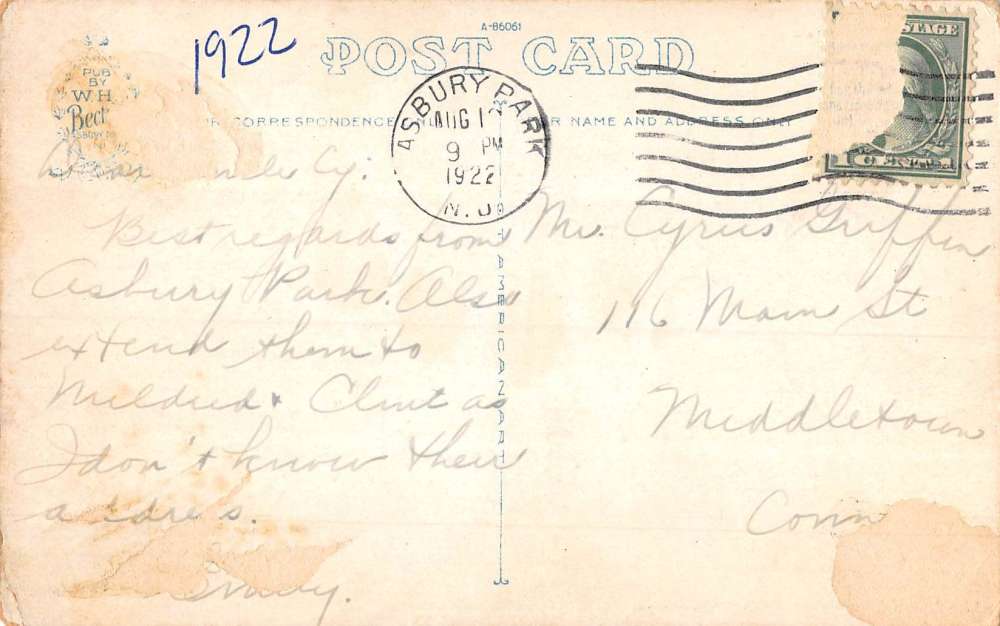 1922
A-86061
POST CARD
PUB
BY
W. H.
CORRESPONDENCE
NAME AND ADDRESS ONLY
ASBURY PARK
AUG
9 PM
1922
N.J.
STAGE
AMERICAN ART
Cy:
Best regards from
Asbury Park. Also
extend them to
Mildred & Clint as
I don't know their
Mr. Cyrus Griffin
116 Main St
Middletown
Conn